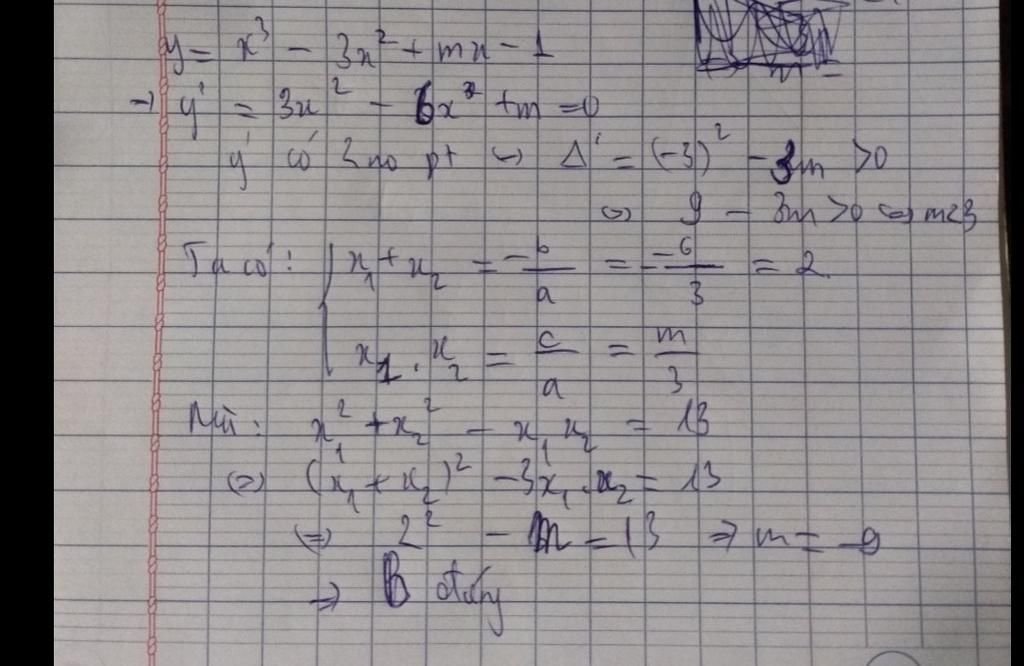 y = x³ - 3x² + mx - 1
→ y' = 3x² - 6x + m = 0
y' có 2 no pt ↔ Δ' = (-3)² - 3m > 0
⇔ 9 - 3m > 0 ⇔ m < 3
Ta có: { x₁ + x₂ = -b/a = -(-6)/3 = 2
x₁ . x₂ = c/a = m/3
x₁² + x₂² - x₁x₂ = 13
⇔ (x₁ + x₂)² - 3x₁.x₂ = 13
⇔ 2² - m = 13 ⇒ m = -9
→ B